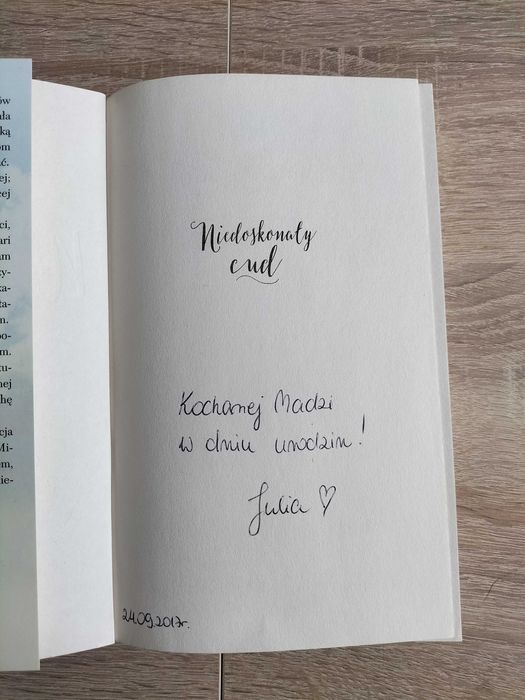 ów
ała
ką
om
ać.
ej;
cej
ci,
ari
am
zy-
ka-
ta-
n.
po-
m.
tu-
nej
hę
cja
Mi-
em,
nie-
Niedoskonały
cud
Kochanej Madzi
w dniu urodzin!
Julia ♡
24.09.2017r.